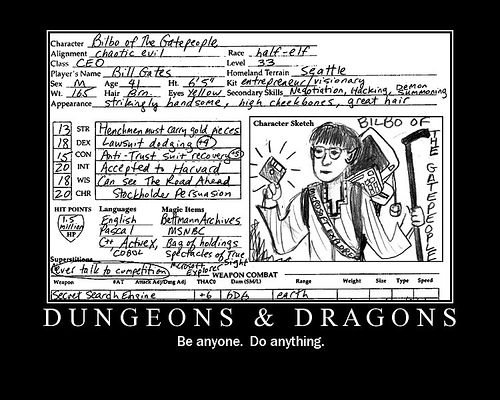 Character Bilbo of The Gatepeople
Alignment chaotic evil Race half-elf
Class CEO Level 33
Player's Name Bill Gates Homeland Terrain Seattle
Sex M Age 41 Ht. 6'5" Kit entrepreneur/visionary
Wt. 165 Hair Brn. Eyes Yellow Secondary Skills Negotiation, Hacking, Demon Summoning
Appearance strikingly handsome, high cheekbones, great hair
13 STR Henchmen must carry gold pieces
18 DEX Lawsuit dodging (+4)
15 CON Anti-Trust suit recovery (+5)
20 INT Accepted to Harvard
18 WIS Can See The Road Ahead
20 CHR Stockholder Persuasion
Character Sketch
BILBO OF
THE GATEPEOPLE
MICROSOFT EXPLORER
HIT POINTS Languages Magic Items
1.5 million HP
English Bettmann Archives
Pascal MSNBC
C++ ActiveX, Bag of holdings
COBOL Spectacles of True Sight
Superstitions
never talk to competition Microsoft Explorer
WEAPON COMBAT
Weapon #AT Attack Adj/Dmg Adj THAC0 Dam (SM/L) Range Weight Size Type Speed
Secret Search Engine +6 6D6 earth
DUNGEONS & DRAGONS
Be anyone. Do anything.